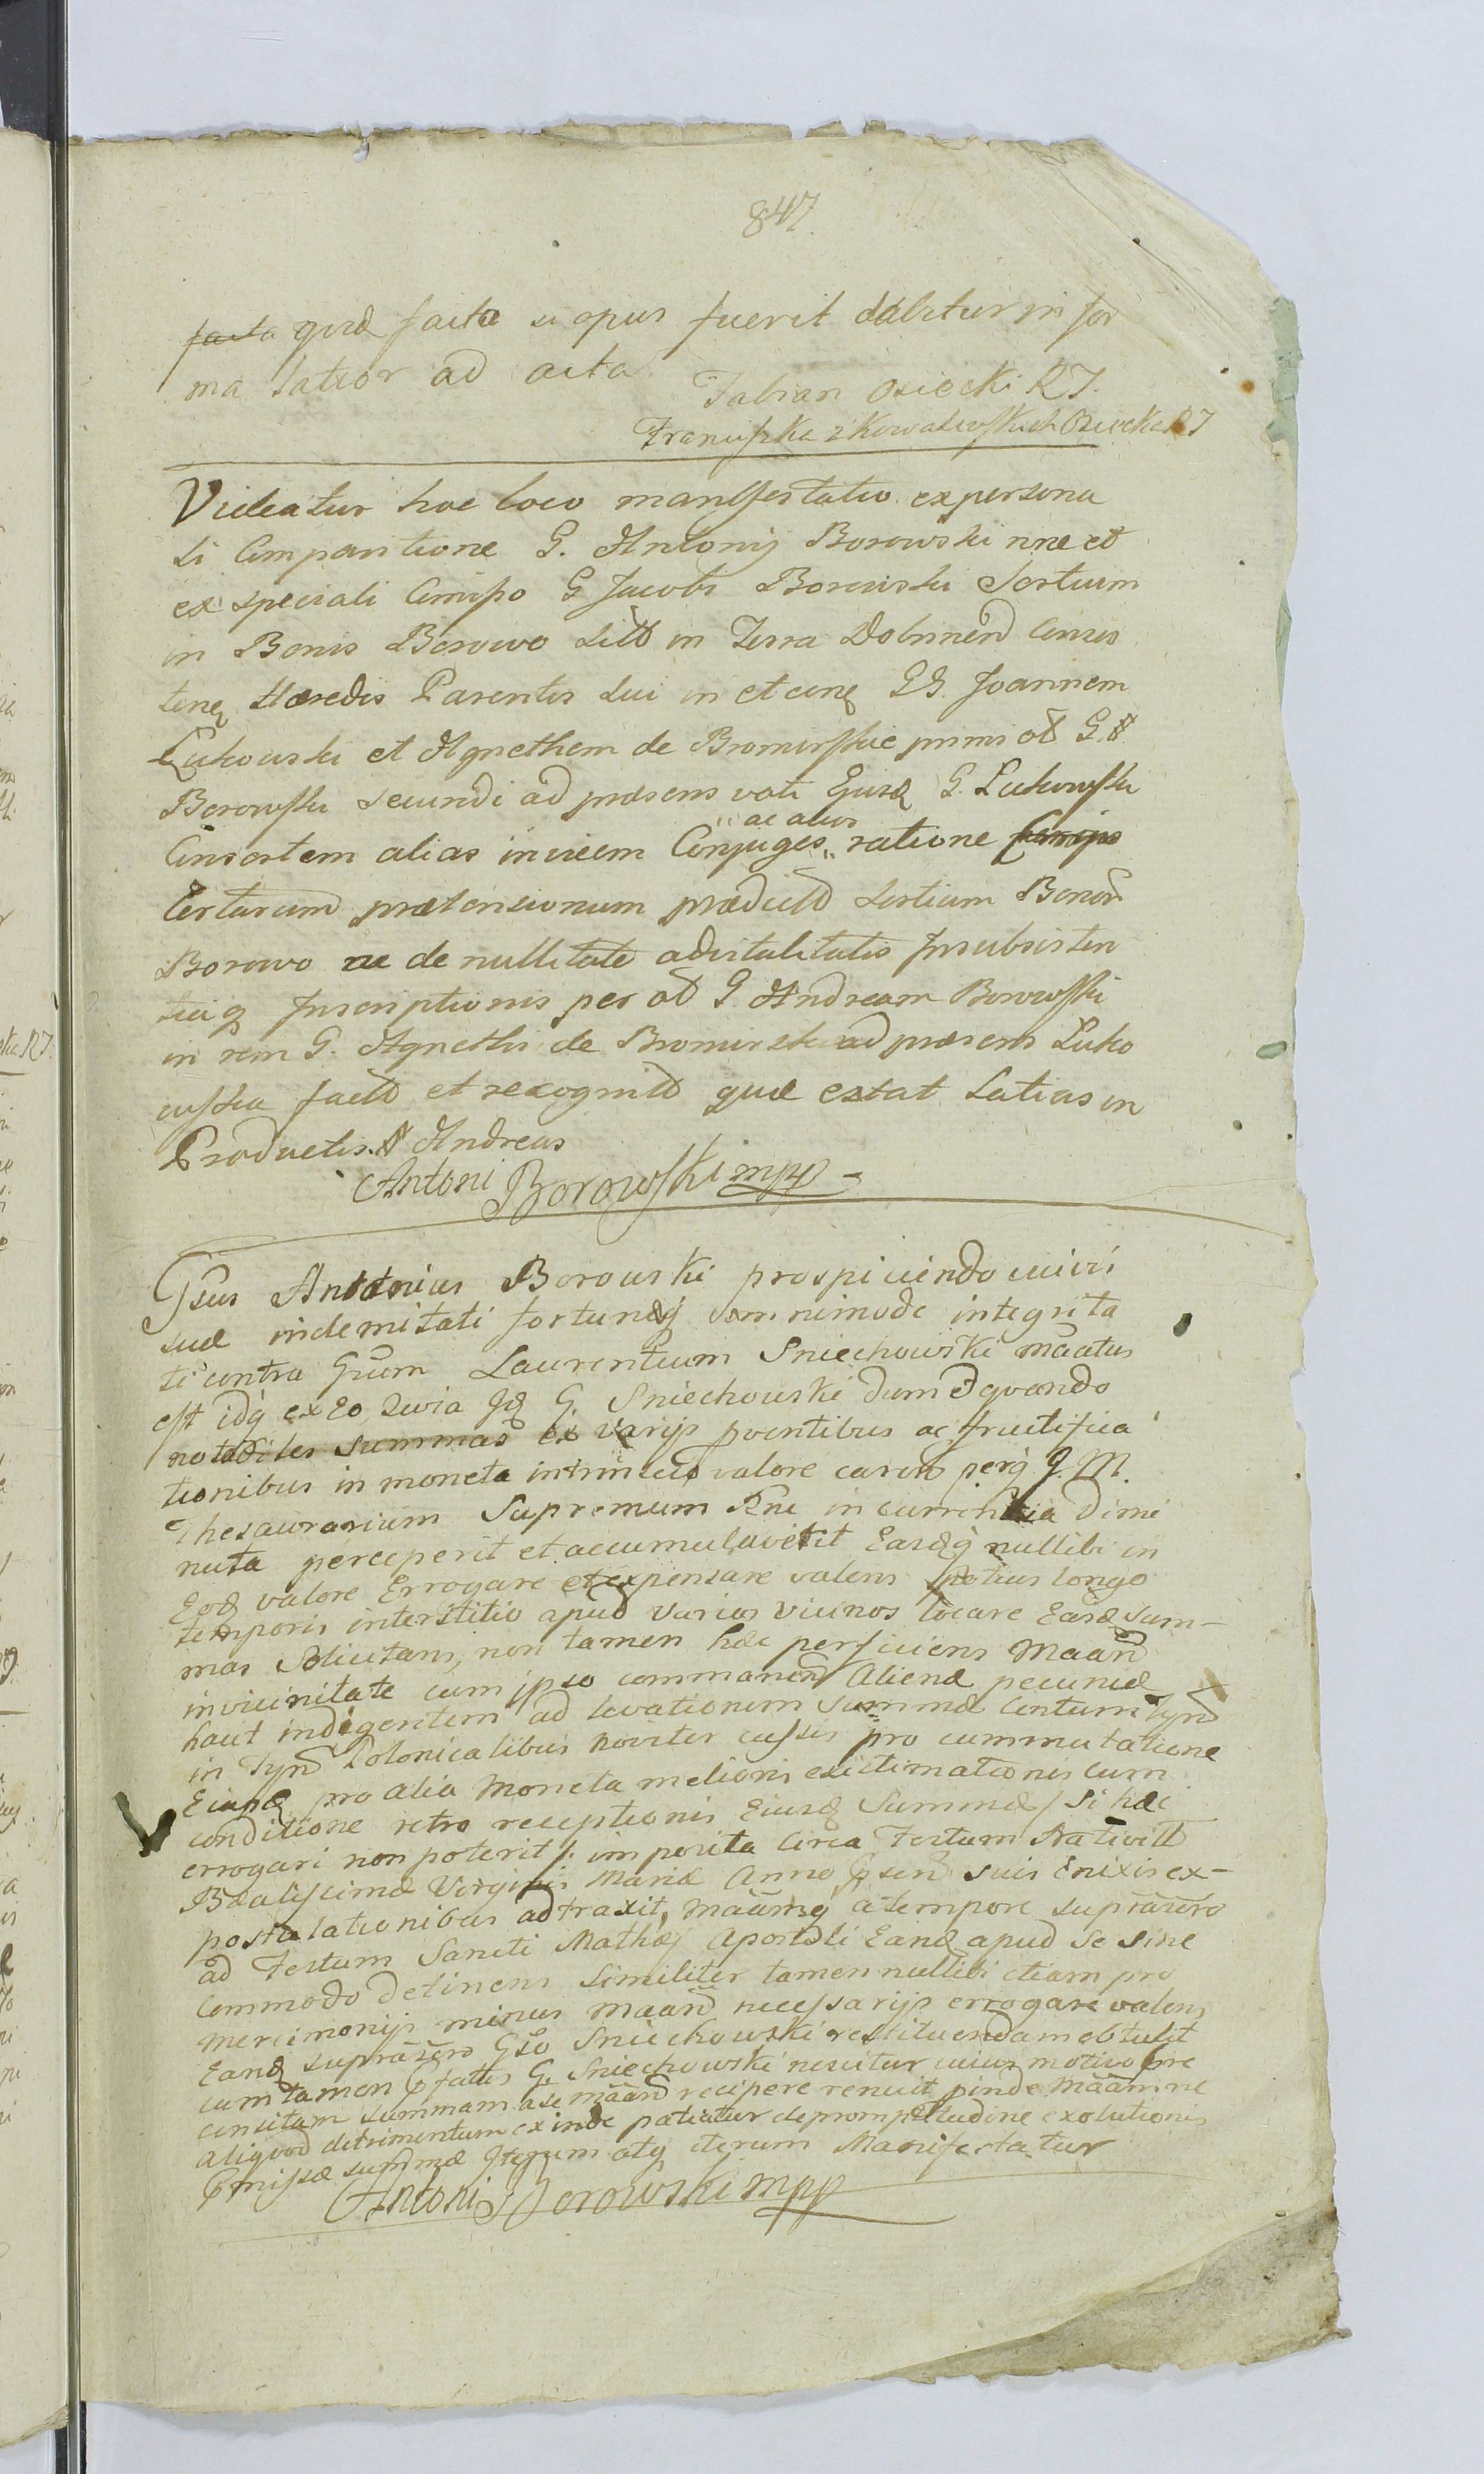 847.
facta quod facta si opus fuerit dabitur in for
ma latior ad acta.
Fabian Osiecki RJ.
Franciszka z Kowalewskich Osiecka RJ
Videatur hoc loco manifestatio ex persona
li Comparitione G. Antonij Borowski nne et
ex speciali G Jacobi Borowski Sortium
in Bonis Borowo sitt in Terra Dobrinen
Hæredis Parentis sui in et GG. Joannem
Lukowski et Agnethem de Bromirskie primi ol G. A
Borowski secundi ad præsens voti G. Lukowski
Consortem alias invicem Conjuges „ ratione
„ ac alios
Certarum prætensionum prædictt Sortium Bonor
Borowo ac de nullitate advitalitatis Insubsisten
tiaq Inscriptionis per ol G. Andream Borowski
in rem G. Agnethis de Bromirskie ad præsens Luko
wska factt et recognitt quæ extat Latius in
Productis. A Andreas
Antoni Borowski mpp
Gsus Antonius Borowski prospiciendo
suæ indemitati fortunæq omnimode integrita
ti contra Gsum Laurentium Sniechowski māatus
est idq ex eo, Quia G. Sniechowski dum quando
notabiles summas ex varijs proventibus ac fructifica
tionibus in moneta intrinseco valore caren perq J. M.
Thesaurarium Supremum Rni in currentia dimi
nuta perceperit et accumulaverit Easdq nullibi in
Eod valore Errogare et expensare valens potius longo
temporis interstitio apud varios vicinos locare Easd Sum-
mas Solicitans, non tamen hæc perficiens Māand
in vicinitate cum ipso commanen Alienæ pecuniæ
haut indigentem ad levationem Summæ Centum Tynf
in Tynf Polonicalibus noviter cussis pro commutatione
pro alia Moneta melioris existimationis cum
conditione retro receptionis Eiusd Summæ /: Si hæc
errogari non poterit :/ imposita Circa Festum Nativitt
Beatissimæ Virginis Mariæ Anno suis Enixis ex-
postulationibus adtraxit, a tempore
ad Festum Sancti Mathæj Apostoli Eand apud Se sine
Commodo detinens Similiter tamen nullibi etiam pro
mercimonijs minus māand necessarijs errogare valens
Eand Gso Sniechowski restituendam obtulit
cum tamen G. Sniechowski nescitur cuius motivo
summam a se māand recipere renuit, ne
aliquod detrimentum exinde patiatur de promptitudine exolutionis
summæ Iterum atq iterum Manifestatur
Antoni Borowski mpp